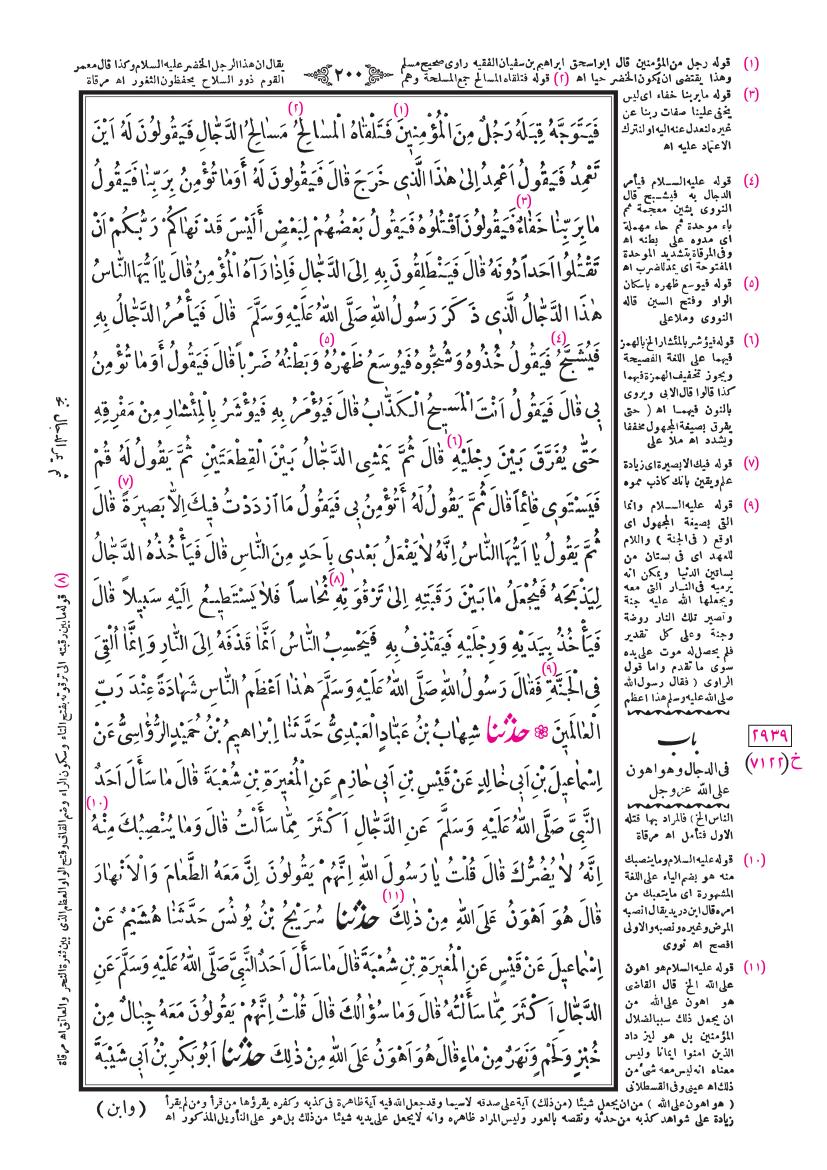 (١) قوله رجل من المؤمنين قال ابواسحق ابراهيم بن سفيان الفقيه راوى صحيح مسلم
يقال ان هذا الرجل الخضر عليه السلام وكذا قال معمر
﴿ ٢٠٠ ﴾
وهذا يقتضى ان يكون الخضر حيا اه (٢) قوله فتلقاه المسالح جمع المسلحة وهم
القوم ذوو السلاح يحفظون الثغور اه مرقاة
(٣) قوله مابربنا خفاء اى ليس
يخفى علينا صفات ربنا عن
غيره لنعدل عنه اليه اونترك
الاعتماد عليه اه
(٤) قوله عليه السلام فيأمر
الدجال به فيشبح قال
النووى بشين معجمة ثم
باء موحدة ثم حاء مهملة
اى مدوه على بطنه اه
وفى المرقاة بتشديد الموحدة
المفتوحة اى يمد للضرب اه
(٥) قوله فيوسع ظهره باسكان
الواو وفتح السين قاله
النووى وملاعلى
(٦) قوله فيؤشر بالمئشار الخ بالهمز
فيهما على اللغة الفصيحة
ويجوز تخفيف الهمزة فيهما
كذا قالوا قال الابى ويروى
بالنون فيهما اه ( حتى
يفرق بصيغة المجهول مخففا
ويشدد اه ملا على
(٧) قوله فيك الابصيرة اى زيادة
علم ويقين بانك كاذب مموه
(٩) قوله عليه السلام وانما
القى بصيغة المجهول اى
اوقع ( فى الجنة ) واللام
للعهد اى فى بستان من
بساتين الدنيا ويمكن انه
يرميه فى النار التى معه
ويجعلها الله عليه جنة
وتصير تلك النار روضة
وجنة وعلى كل تقدير
فلم يحصل له موت على يده
سوى ما تقدم واما قول
الراوى ( فقال رسول الله
صلى الله عليه وسلم هذا اعظم
باب
فى الدجال وهو اهون
على الله عز وجل
٢٩٣٩
خ (٧١٢٢)
الناس الخ) فالمراد بها قتله
الاول فتأمل اه مرقاة
(١٠) قوله عليه السلام وما ينصبك
منه هو بضم الياء على اللغة
المشهورة اى ما يتعبك من
امره قال ابن دريد يقال انصبه
المرض وغيره ونصبه والاولى
افصح اه نووى
(١١) قوله عليه السلام هو اهون
على الله الخ قال القاضى
هو اهون على الله من
ان يجعل ذلك سببا لضلال
المؤمنين بل هو ليزداد
الذين امنوا ايمانا وليس
معناه انه ليس معه شىء من
ذلك اه عينى وفى القسطلانى
فَيَتَوَجَّهُ قِبَلَهُ رَجُلٌ مِنَ الْمُؤْمِنِينَ (١) فَتَلْقَاهُ الْمَسَالِحُ (٢) مَسَالِحُ الدَّجَّالِ فَيَقُولُونَ لَهُ اَيْنَ
تَعْمِدُ فَيَقُولُ اَعْمِدُ اِلىٰ هٰذَا الَّذِى خَرَجَ قَالَ فَيَقُولُونَ لَهُ أَوَمَا تُؤْمِنُ بِرَبِّنَا فَيَقُولُ
مَا بِرَبِّنَا خَفَاءٌ (٣) فَيَقُولُونَ اقْتُلُوهُ فَيَقُولُ بَعْضُهُمْ لِبَعْضٍ أَلَيْسَ قَدْ نَهَاكُمْ رَبُّكُمْ اَنْ
تَقْتُلُوا اَحَداً دُونَهُ قَالَ فَيَنْطَلِقُونَ بِهِ اِلَى الدَّجَّالِ فَاِذَا رَآهُ الْمُؤْمِنُ قَالَ يَا اَيُّهَا النَّاسُ
هٰذَا الدَّجَّالُ الَّذِى ذَكَرَ رَسُولُ اللهِ صَلَّى اللهُ عَلَيْهِ وَسَلَّمَ قَالَ فَيَأْمُرُ الدَّجَّالُ بِهِ
فَيُشَبَّحُ (٤) فَيَقُولُ خُذُوهُ وَشُجُّوهُ فَيُوسَعُ ظَهْرُهُ (٥) وَبَطْنُهُ ضَرْباً قَالَ فَيَقُولُ أَوَمَا تُؤْمِنُ
بِى قَالَ فَيَقُولُ اَنْتَ الْمَسِيحُ الْكَذَّابُ قَالَ فَيُؤْمَرُ بِهِ فَيُؤْشَرُ بِالْمِئْشَارِ مِنْ مَفْرِقِهِ
حَتّٰى يُفَرَّقَ بَيْنَ رِجْلَيْهِ (٦) قَالَ ثُمَّ يَمْشِى الدَّجَّالُ بَيْنَ الْقِطْعَتَيْنِ ثُمَّ يَقُولُ لَهُ قُمْ
فَيَسْتَوِى قَائِماً قَالَ ثُمَّ يَقُولُ لَهُ أَتُؤْمِنُ بِى فَيَقُولُ مَا ازْدَدْتُ فِيكَ اِلَّا بَصِيرَةً (٧) قَالَ
ثُمَّ يَقُولُ يَا اَيُّهَا النَّاسُ اِنَّهُ لَا يَفْعَلُ بَعْدِى بِاَحَدٍ مِنَ النَّاسِ قَالَ فَيَأْخُذُهُ الدَّجَّالُ
لِيَذْبَحَهُ فَيُجْعَلُ مَا بَيْنَ رَقَبَتِهِ اِلىٰ تَرْقُوَتِهِ (٨) نُحَاساً فَلَا يَسْتَطِيعُ اِلَيْهِ سَبِيلاً قَالَ
فَيَأْخُذُ بِيَدَيْهِ وَرِجْلَيْهِ فَيَقْذِفُ بِهِ فَيَحْسِبُ النَّاسُ اَنَّمَا قَذَفَهُ اِلَى النَّارِ وَاِنَّمَا اُلْقِىَ
فِى الْجَنَّةِ (٩) فَقَالَ رَسُولُ اللهِ صَلَّى اللهُ عَلَيْهِ وَسَلَّمَ هٰذَا اَعْظَمُ النَّاسِ شَهَادَةً عِنْدَ رَبِّ
الْعَالَمِينَ ۞ حَدَّثَنَا شِهَابُ بْنُ عَبَّادٍ الْعَبْدِىُّ حَدَّثَنَا اِبْرَاهِيمُ بْنُ حُمَيْدٍ الرُّؤَاسِىُّ عَنْ
اِسْمَاعِيلَ بْنِ اَبِى خَالِدٍ عَنْ قَيْسِ بْنِ اَبِى حَازِمٍ عَنِ الْمُغِيرَةِ بْنِ شُعْبَةَ قَالَ مَا سَأَلَ اَحَدٌ
النَّبِىَّ صَلَّى اللهُ عَلَيْهِ وَسَلَّمَ عَنِ الدَّجَّالِ اَكْثَرَ مِمَّا سَأَلْتُ قَالَ وَمَا يُنْصِبُكَ مِنْهُ (١٠)
اِنَّهُ لَا يَضُرُّكَ قَالَ قُلْتُ يَا رَسُولَ اللهِ اِنَّهُمْ يَقُولُونَ اِنَّ مَعَهُ الطَّعَامَ وَالْاَنْهَارَ
قَالَ هُوَ اَهْوَنُ عَلَى اللهِ مِنْ ذٰلِكَ (١١) حَدَّثَنَا سُرَيْجُ بْنُ يُونُسَ حَدَّثَنَا هُشَيْمٌ عَنْ
اِسْمَاعِيلَ عَنْ قَيْسٍ عَنِ الْمُغِيرَةِ بْنِ شُعْبَةَ قَالَ مَا سَأَلَ اَحَدٌ النَّبِىَّ صَلَّى اللهُ عَلَيْهِ وَسَلَّمَ عَنِ
الدَّجَّالِ اَكْثَرَ مِمَّا سَأَلْتُهُ قَالَ وَمَا سُؤَالُكَ قَالَ قُلْتُ اِنَّهُمْ يَقُولُونَ مَعَهُ جِبَالٌ مِنْ
خُبْزٍ وَلَحْمٍ وَنَهَرٌ مِنْ مَاءٍ قَالَ هُوَ اَهْوَنُ عَلَى اللهِ مِنْ ذٰلِكَ حَدَّثَنَا اَبُوبَكْرِ بْنُ اَبِى شَيْبَةَ
(٨) قوله مابين رقبته الى ترقوته بفتح التاء وسكون الراء وضم القاف وفتح الواو العظم الذى بين ثغرة النحر والعاتق اه مرقاة
( هو اهون على الله ) من ان يجعل شيئا (من ذلك) آية على صدقه لاسيما وقد جعل الله فيه آية ظاهرة فى كذبه وكفره يقرؤها من قرأ ومن لم يقرأ
زيادة على شواهد كذبه من حدثه ونقصه بالعور وليس المراد ظاهره وانه لايجعل على يديه شيئا من ذلك بل هو على التأويل المذكور اه
(وابن)